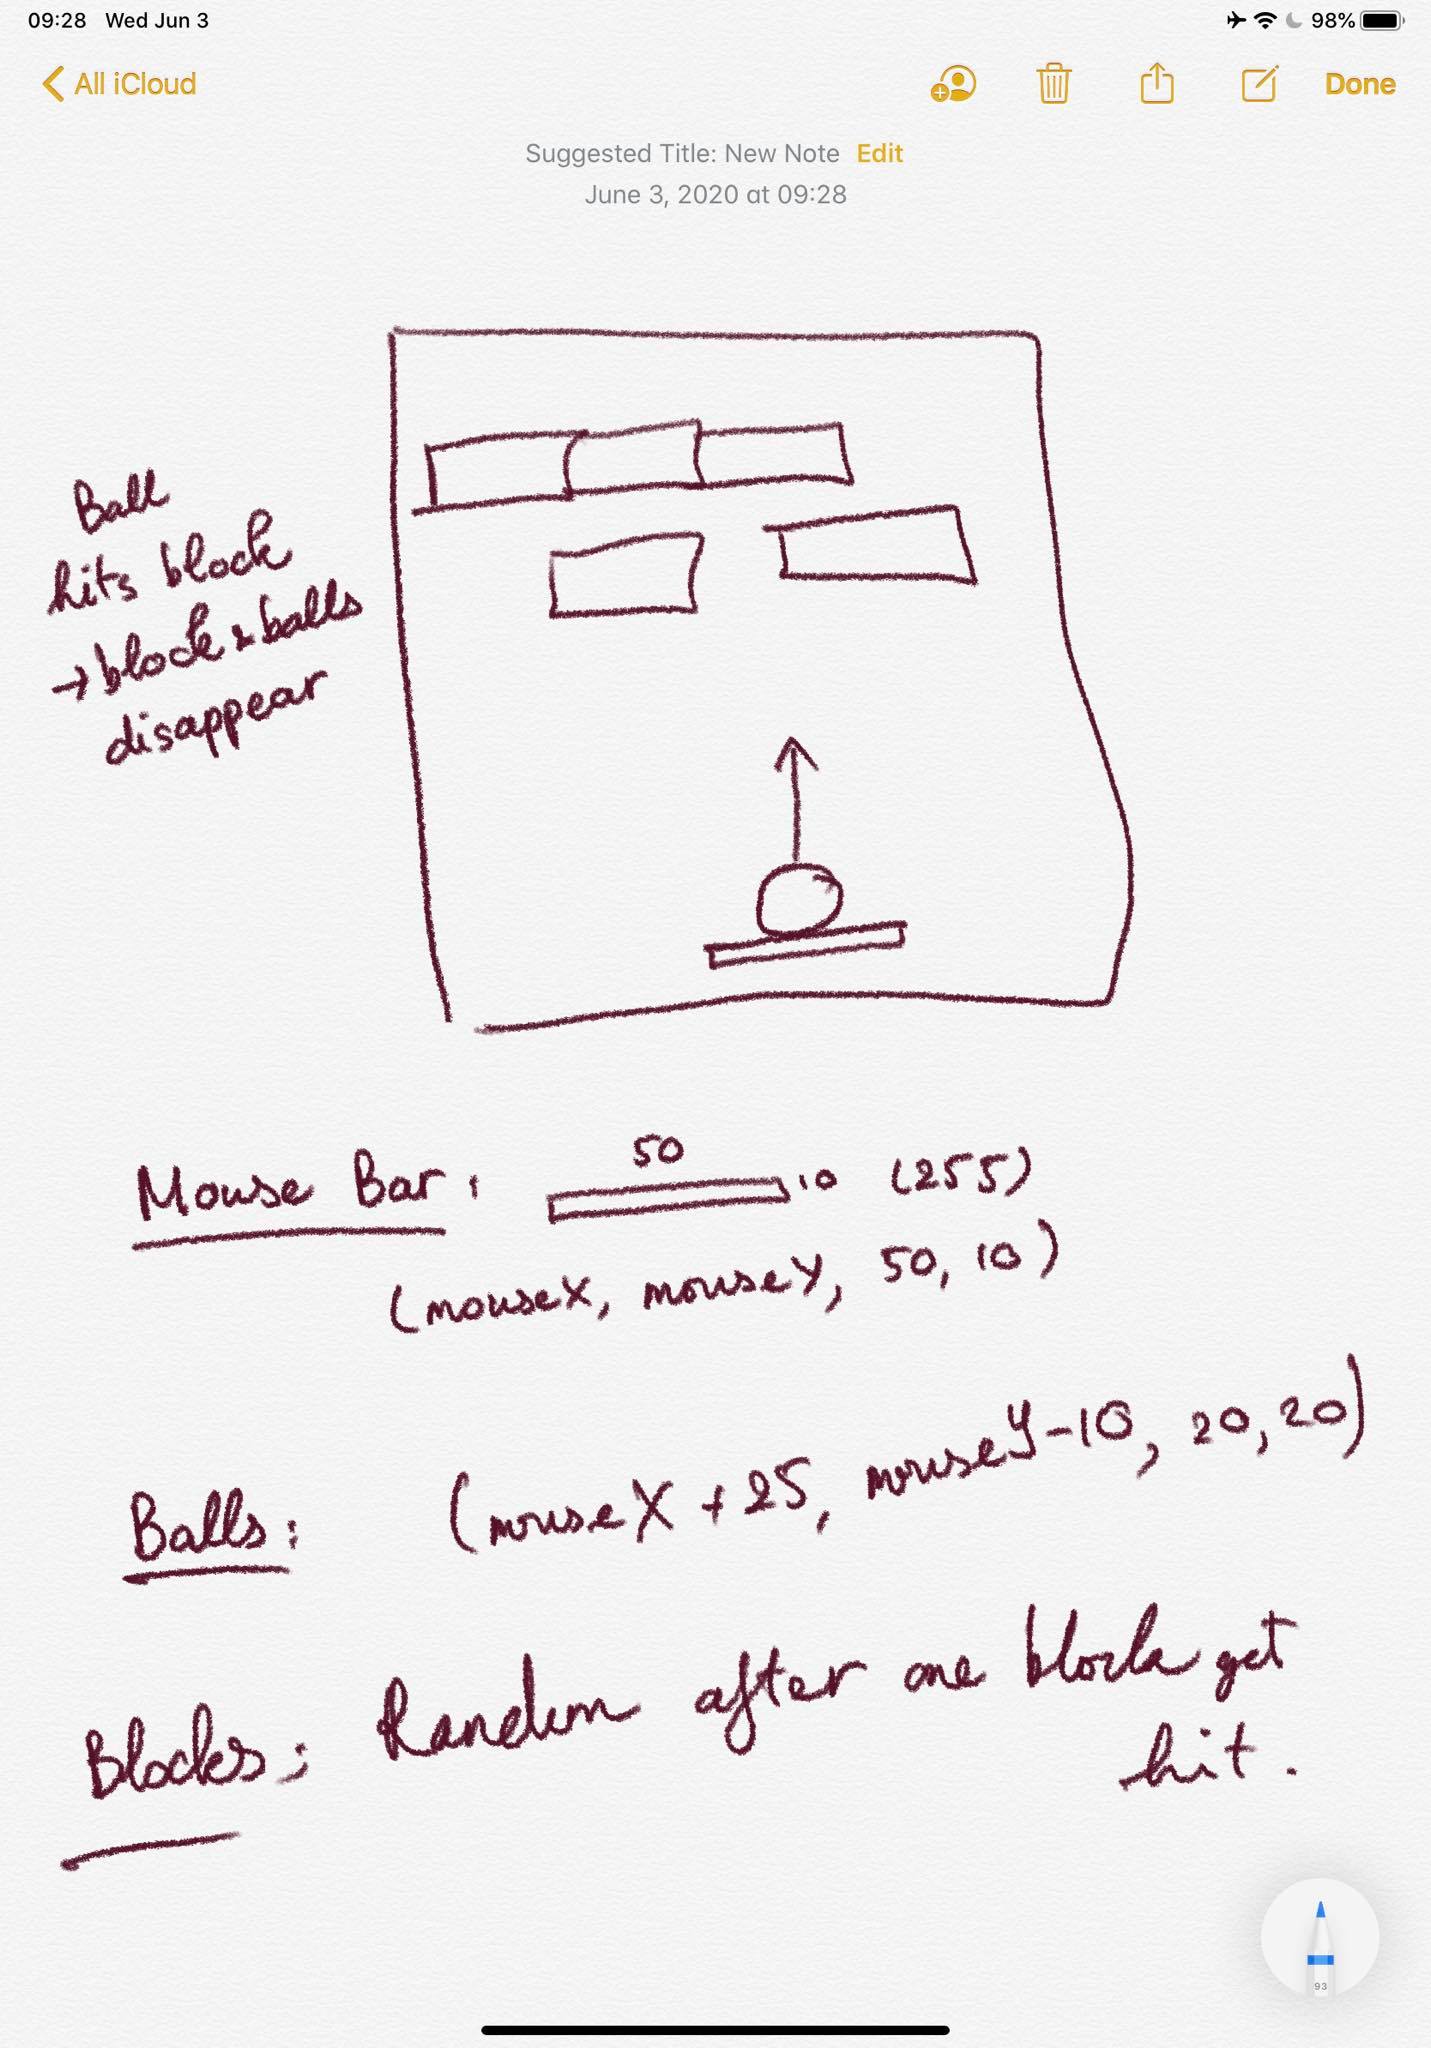 09:28 Wed Jun 3
98%
All iCloud
Done
Suggested Title: New Note Edit
June 3, 2020 at 09:28
Ball
hits block
→ block & balls
disappear
Mouse Bar:
50
10 (255)
(mouseX, mouseY, 50, 10)
Balls: (mouseX + 25, mouseY-10, 20, 20)
Blocks: Random after one block get
hit.
93